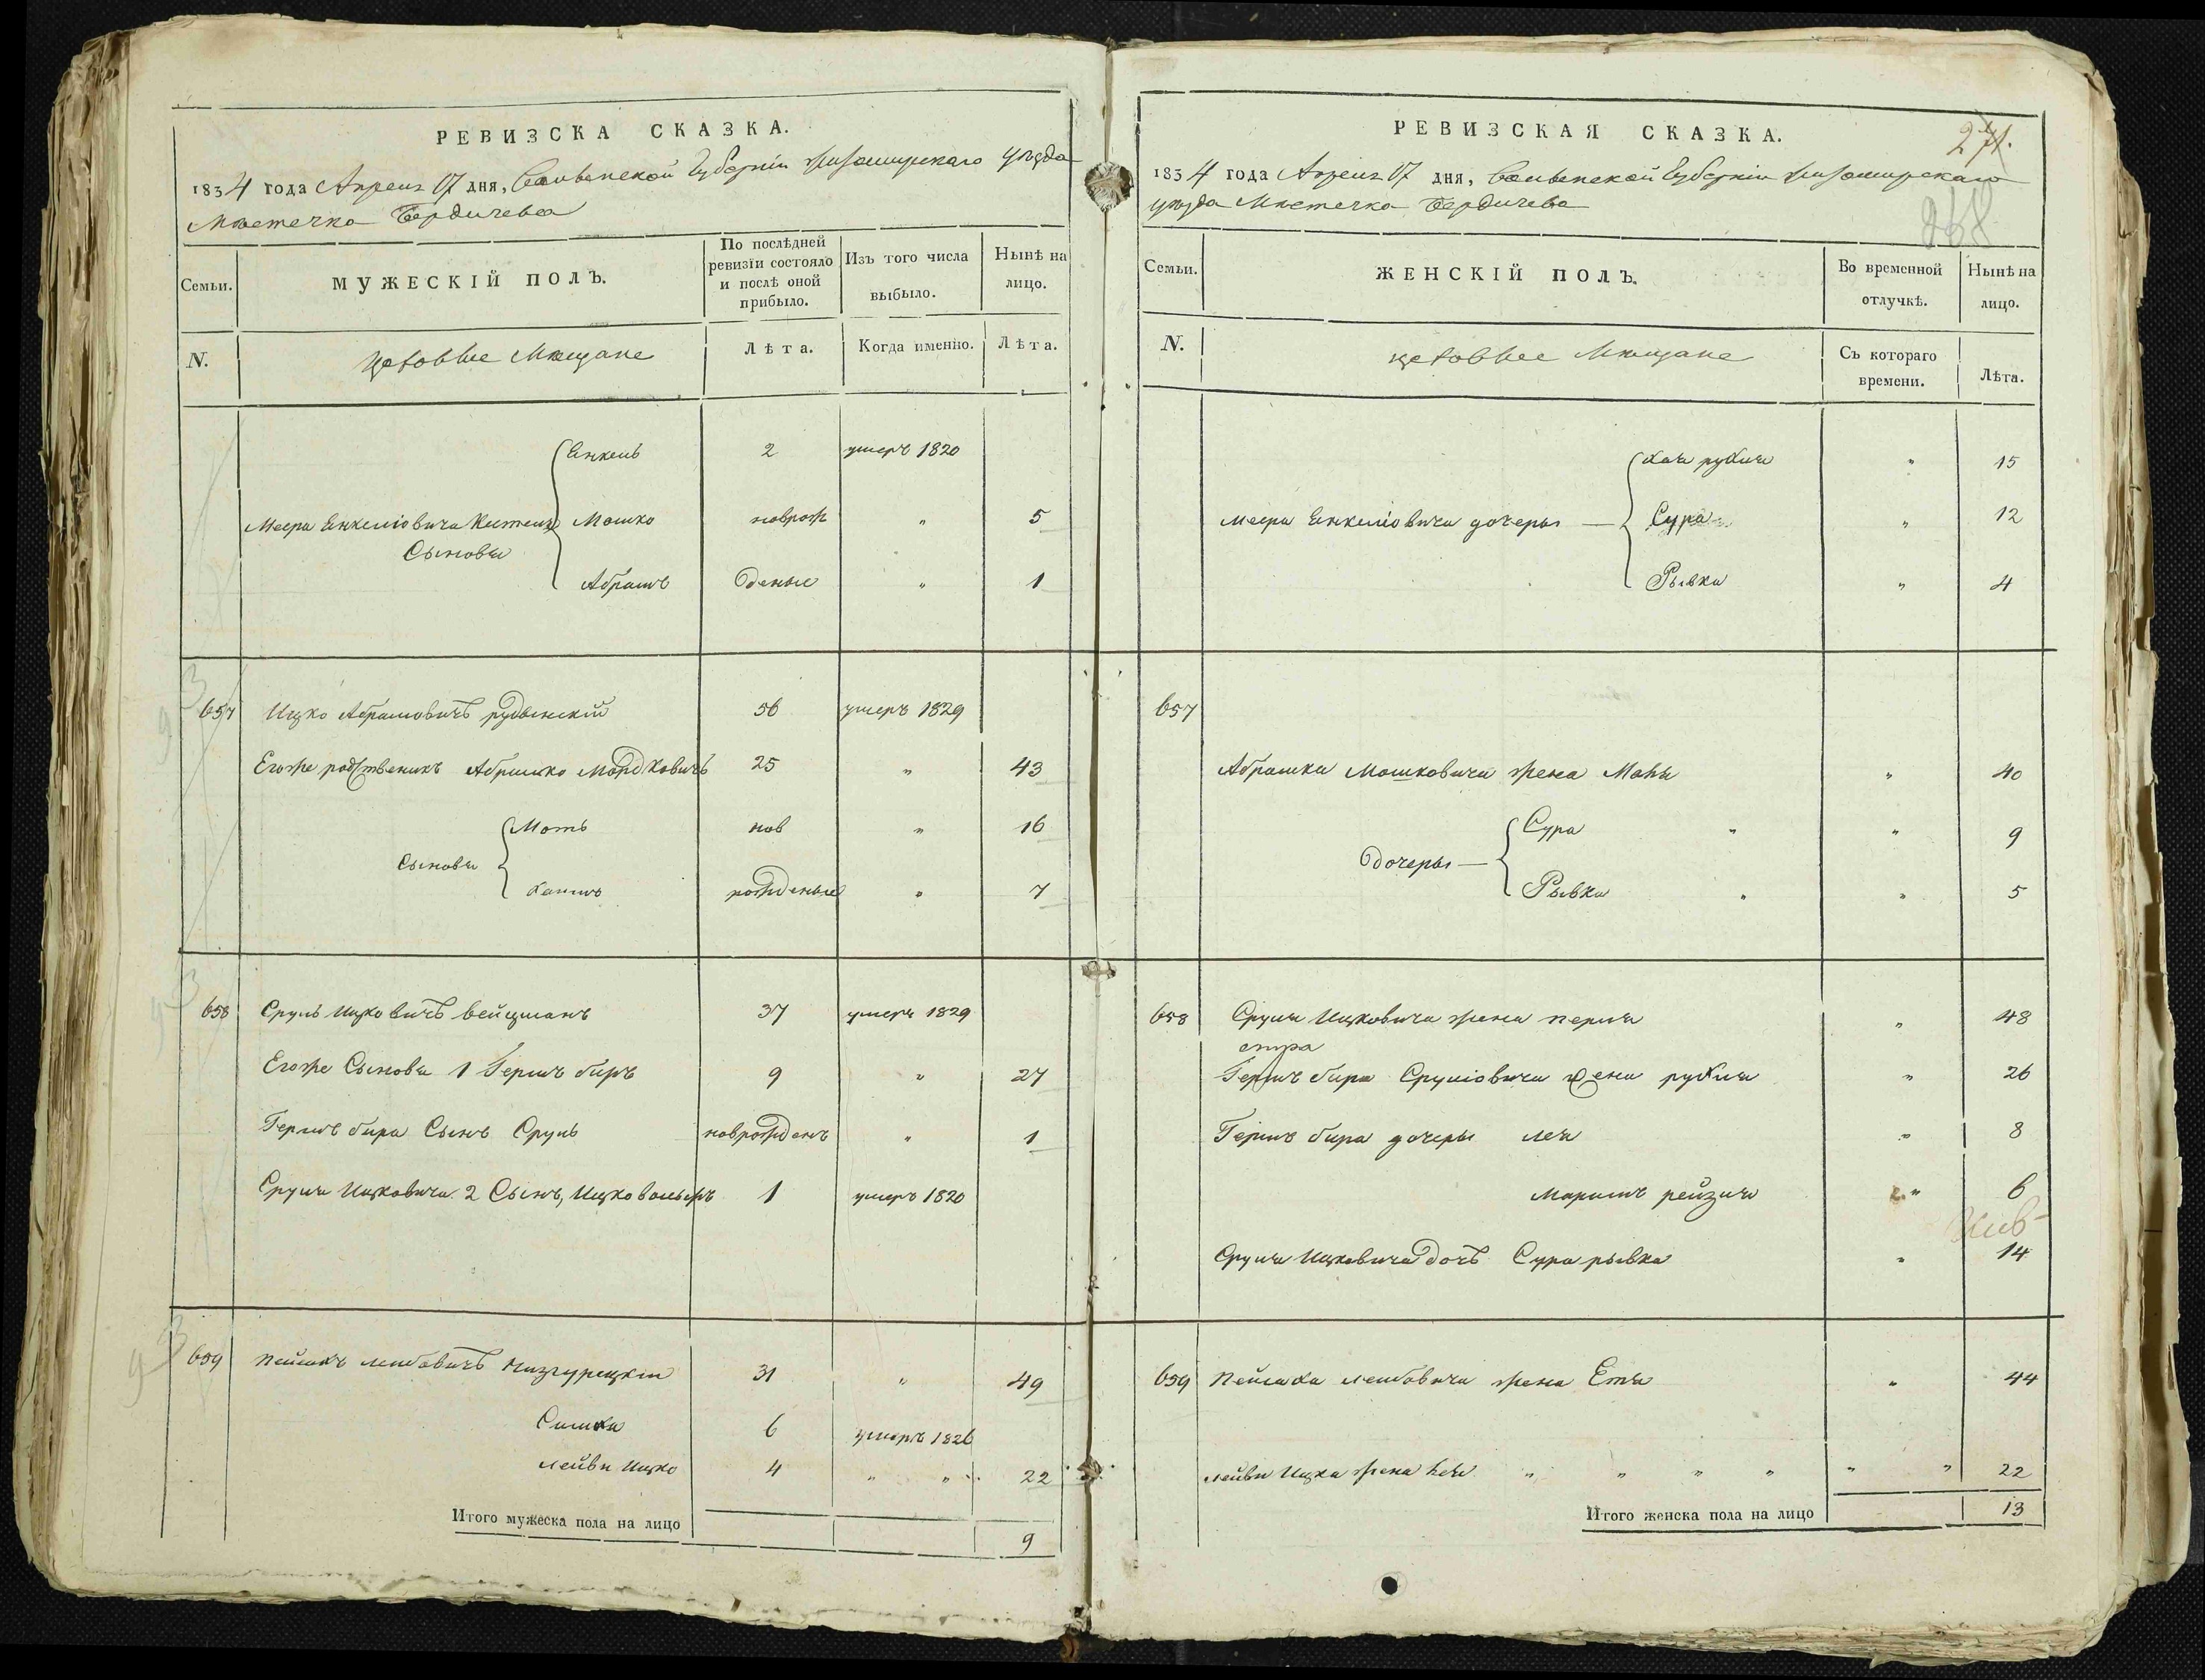 РЕВИЗСКА СКАЗКА.
1834 года Апреля 17 дня, Волынской Губерніи Житомирскаго уѣзда
Мѣстечка Бердичева
Семьи. МУЖЕСКІЙ ПОЛЪ. По послѣдней ревизіи состояло и послѣ оной прибыло. Изъ того числа выбыло. Нынѣ на лицо.
N. цеховые Мѣщане Лѣта. Когда именно. Лѣта.
Енкель 2 умеръ 1820
Меера Енкеліовича Мошко новрож " 5
Сыновья
Абрамъ деные " 1
657 Ицко Абрамовичъ рудынскій 56 умеръ 1829
Егоже родственикъ Абрамко Мордковичъ 25 " 43
Моть нов " 16
Сыновья
Хаимъ рожденые " 7
658 Сруль Ицковичъ вейцманъ 37 умеръ 1829
Егоже Сыновья 1 Гершъ биръ 9 " 27
Гершъ бира Сынъ Сруль новрожденъ " 1
Сруля Ицковича 2 Сынъ, Ицко вольыръ 1 умеръ 1820
659 Пейсахъ лейбовичъ Низгурецкіи 31 " 49
Симха 6 умеръ 1826
лейви Ицко 4 " " 22
Итого мужеска пола на лицо 9
РЕВИЗСКАЯ СКАЗКА.
271.
1834 года Апреля 17 дня, Волынской Губерніи Житомирскаго
уѣзда Мѣстечка Бердичева
268
Семьи. ЖЕНСКІЙ ПОЛЪ. Во временной отлучкѣ. Нынѣ на лицо.
N. цеховые Мѣщане Съ котораго времени. Лѣта.
Хая рухля " 15
Меера Енкеліовича дочеры — Сура " 12
Рывка " 4
657
Абрамка Мошковича жена Маня " 40
Сура " " 9
дочеры —
Рывка " " 5
658 Сруля Ицковича жена перля " 48
Гершъ бира Сруліовича жена рухля " 26
Гершъ бира дочеры лея " 8
Маріимъ рейзля " 6
Сруля Ицковича дочъ Сура рывка " 14
659 Пейсаха лейбовича жена Етя " 44
лейви Ицка жена " " " " " " 22
Итого женска пола на лицо 13